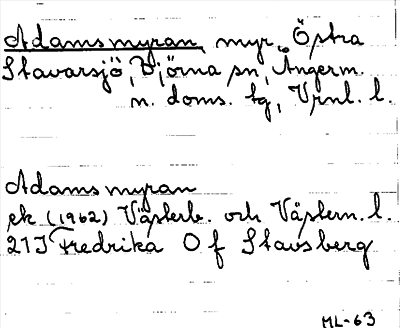 Adamsmyran, myr, Östra
Stavarsjö, Björna sn, Ångerm.
n. doms. tg, Vrnl. l.
Adamsmyran
ek (1962) Västerb. och Västern. l.
21J Fredrika O f Stavsberg
ML-63